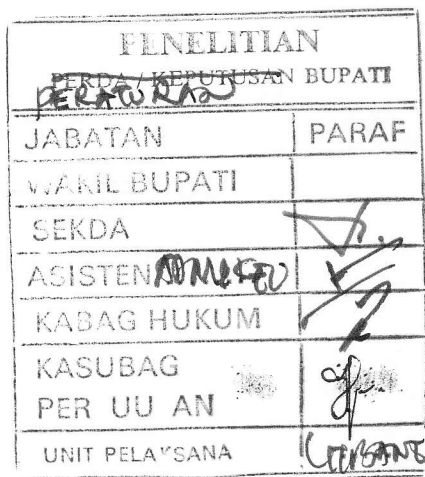 PENELITIAN
PERDA / KEPUTUSAN BUPATI
PERATURAN
JABATAN PARAF
WAKIL BUPATI
SEKDA
ASISTEN
KABAG HUKUM
KASUBAG
PER UU AN
UNIT PELAKSANA